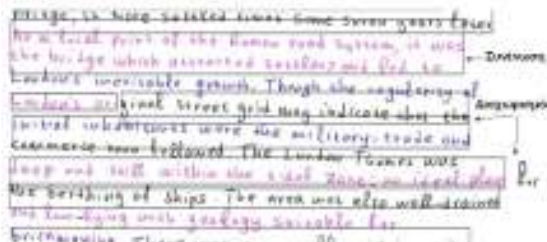 bridge, in more settled times some seven years later
As a focal point of the Roman road system, it was
the bridge which attracted settlers and led to
London's inevitable growth. Though the regularity of
London's original street grid may indicate that the
initial inhabitants were the military, trade and
commerce soon followed. The London Thames was
deep and still within the tidal zone - an ideal place
the berthing of ships. The area was also well-drained
and low-lying with geology suitable for
brickmaking. There
for